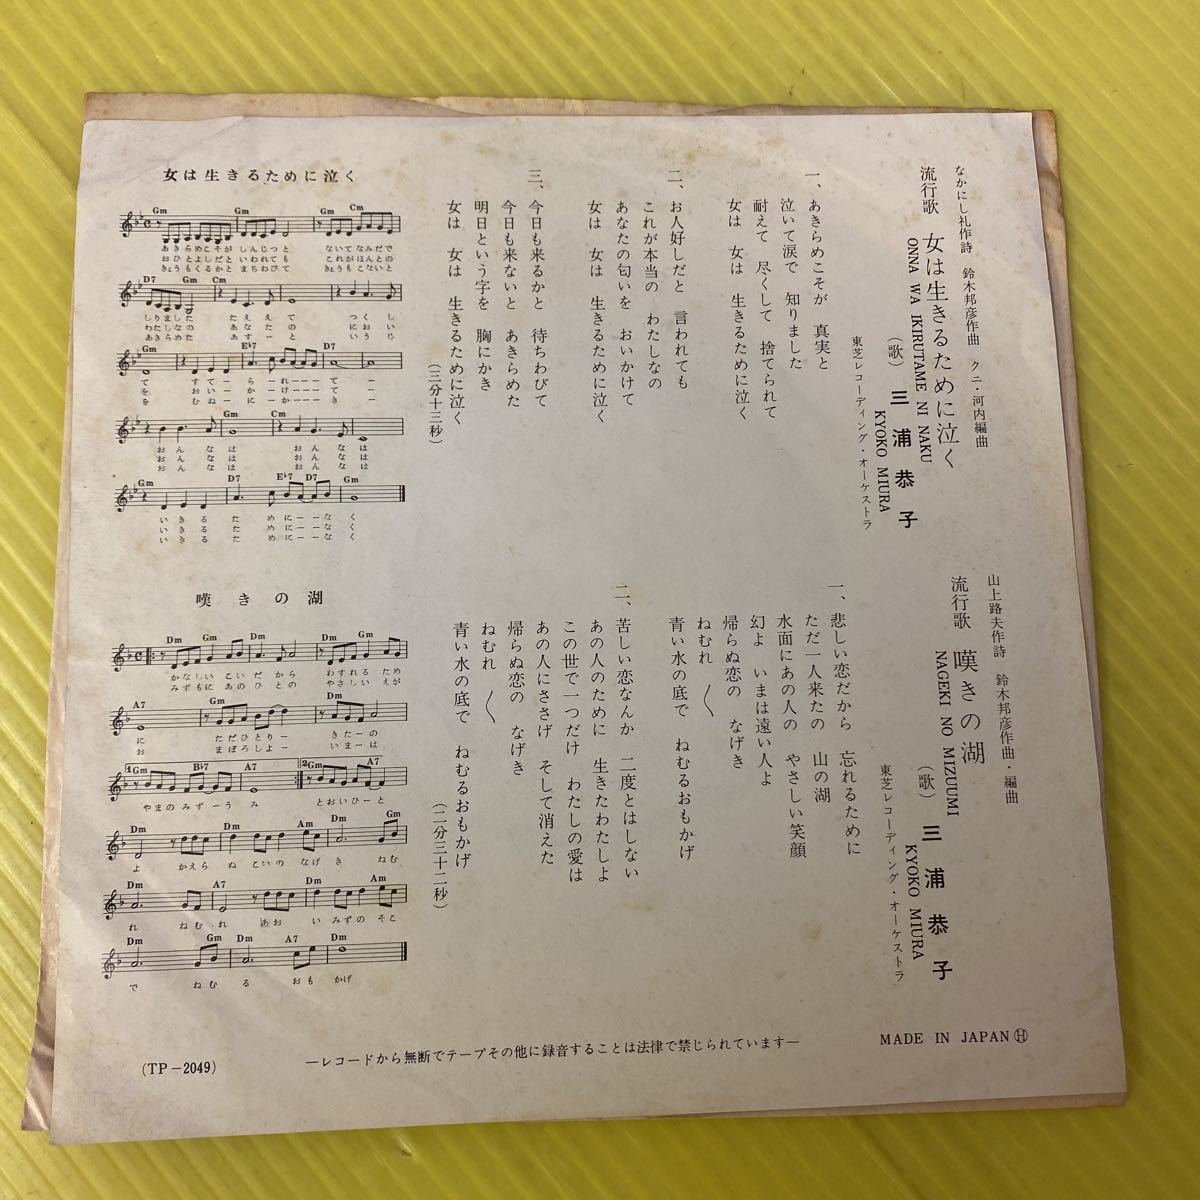 なかにし礼作詩　鈴木邦彦作曲　クニ・河内編曲
流行歌　女は生きるために泣く
ONNA WA IKIRUTAME NI NAKU
(歌)　三浦恭子
KYOKO MIURA
東芝レコーディング・オーケストラ
一、あきらめこそが　真実と
泣いて涙で　知りました
耐えて　尽くして　捨てられて
女は　女は　生きるために泣く
二、お人好しだと　言われても
これが本当の　わたしなの
あなたの匂いを　おいかけて
女は　女は　生きるために泣く
三、今日も来るかと　待ちわびて
今日も来ないと　あきらめた
明日という字を　胸にかき
女は　女は　生きるために泣く
(三分十三秒)
女は生きるために泣く
Gm Gm Gm Cm
あきらめこそが しんじつと ないてなみだで
おひとよしだと いわれても これがほんとの
きょうもくるかと まちわびて きょうもこないと
D7 Gm Cm
しりました たえて つくし
わたしなの あなたの におい
あきらめた あすーと いうじ
Gm E♭7 D7
て すてーられーてー
を おいーかけーてー
を むねーにーかーきー
Gm Cm
おんなは おんなは
おんなは おんなは
おんなは おんなは
Gm D7 E♭7 D7 Gm
いきる ためにーーなく
いきる ためにーーなく
いきる ためにーーなく
山上路夫作詩　鈴木邦彦作曲・編曲
流行歌　嘆きの湖
NAGEKI NO MIZUUMI
(歌)　三浦恭子
KYOKO MIURA
東芝レコーディング・オーケストラ
一、悲しい恋だから　忘れるために
ただ一人来たの　山の湖
水面にあの人の　やさしい笑顔
幻よ　いまは遠い人よ
帰らぬ恋の　なげき
ねむれ　〱
青い水の底で　ねむるおもかげ
二、苦しい恋なんか　二度とはしない
あの人のために　生きたわたしよ
この世で一つだけ　わたしの愛は
あの人にささげ　そして消えた
帰らぬ恋の　なげき
ねむれ　〱
青い水の底で　ねむるおもかげ
(二分三十二秒)
嘆きの湖
Dm Gm Dm Dm
かなしい こいだから わすれるため
みずもに あのひとの やさしいえが
A7 Dm
に ただひとりー きたーの
お まぼろしよー いまーは
1 Gm B♭7 A7 2 Gm A7
やまのみずーうみ とおいひーと
Dm Dm Am Dm Gm
よ かえらぬ こいのなげき ねむ
Dm A7 Dm Dm Am
れ ねむれ あおいみずのそこ
Dm Gm Dm A7 Dm
で ねむる おもかげ
MADE IN JAPAN Ⓗ
—レコードから無断でテープその他に録音することは法律で禁じられています—
(TP－2049)